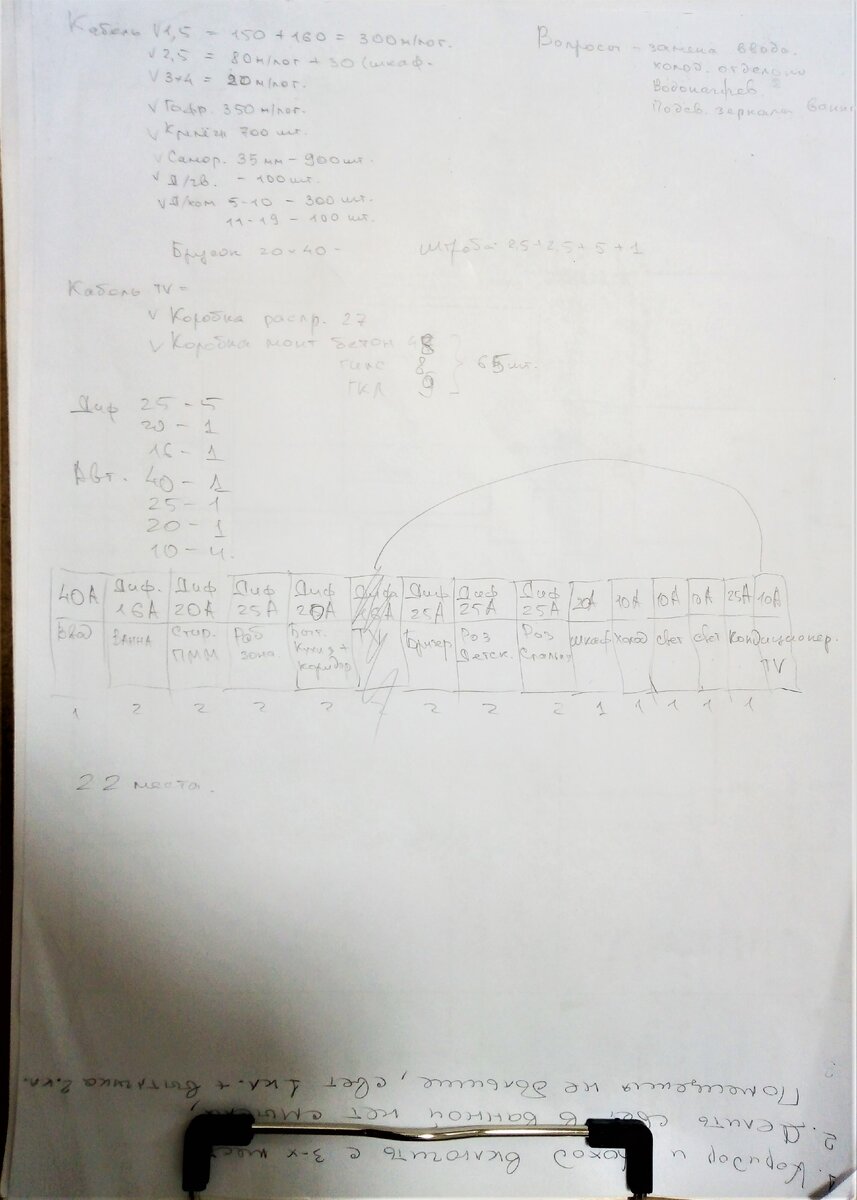 Кабель √1,5 = 150 + 160 = 300 м/пог.
√ 2,5 = 80 м/пог + 30 (шкаф.
√ 3×4 = 20 м/пог.
√ Гофр. 350 м/пог.
√ Крепёж 700 шт.
√ Самор. 35 мм – 900 шт.
√ Д/гв. – 100 шт.
√ Д/хом 5-10 – 300 шт.
11-19 – 100 шт.
Брусок 20×40 –
Вопросы – замена ввода.
холод. отдельно
Водонагрев.
Подсв. зеркала ванн
Штроба 2,5+2,5+5+1
Кабель TV =
√ Коробка распр. 27
√ Коробка монт бетон 48
гипс 8
ГКЛ 9
65 шт.
Диф 25 – 5
20 – 1
16 – 1
Авт. 40 – 1
25 – 1
20 – 1
10 – 4.
40А Диф. 16А Диф 20А Диф 25А Диф 20А Диф 16А Диф 25А Диф 25А Диф 25А 20А 10А 10А 10А 25А 10А
Ввод Ванна Стир. ПММ Раб зона Выт. Кухня + Коридор TV Бойлер Роз Детск. Роз Спальн Шкаф Холод Свет Свет Кондиционер. TV
1 2 2 2 2 2 2 2 1 1 1 1 1
22 места.
1. Коридор и проход включить с 3-х мест
2. Делить свет в ванной нет смысла,
Помещения не большие, свет 1 кл. + вытяжка 2.кл.
3